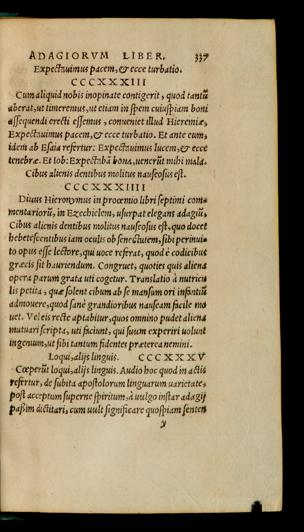 ADAGIORVM LIBER. 337
Expectauimus pacem, & ecce turbatio.
CCCXXXIII
Cum aliquid nobis inopinate contigerit, quod tantū
aberat, ut timeremus, ut etiam in spem cuiuspiam boni
assequendi erecti essemus, conueniet illud Hieremiæ,
Expectauimus pacem, & ecce turbatio. Et ante eum,
idem ab Esaia refertur: Expectauimus lucem, & ecce
tenebræ. Et Iob: Expectabā bona, uenerūt mihi mala.
Cibus alienis dentibus molitus nauseosus est.
CCCXXXIIII
Diuus Hieronymus in proœmio libri septimi com-
mentariorū, in Ezechielem, usurpat elegans adagiū,
Cibus alienis dentibus molitus nauseosus est, quo docet
hebetescentibus iam oculis ob senectutem, sibi perinui-
to opus esse lectore, qui uoce referat, quod è codicibus
græcis sit hauriendum. Congruet, quoties quis aliena
opera parum grata uti cogetur. Translatio à nutricu
lis petita, quæ solent cibum ab se mansum ori infantiū
admouere, quod sanè grandioribus nauseam facile mo
uet. Vel eis recte aptabitur, quos omnino pudet aliena
mutuari scripta, uti faciunt, qui suum experiri uolunt
ingenium, ut sibi tantum fidentes præterea nemini.
Loqui, alijs linguis. CCCXXXV
Cœperūt loqui, alijs linguis. Audio hoc quod in actis
refertur, de subita apostolorum linguarum uarietate,
post acceptum superne spiritum, à uulgo instar adagij
passim dictitari, cum uult significare quospiam senten
y